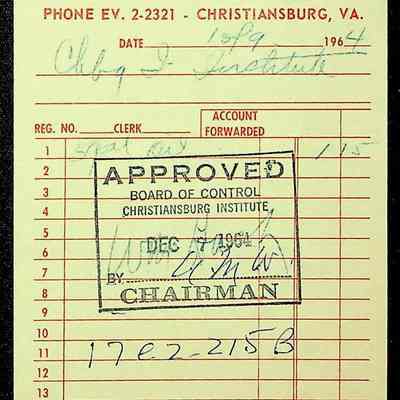 PHONE EV. 2-2321 - CHRISTIANSBURG, VA.
DATE 1964
Chbg I Institute
ACCOUNT
REG. NO. CLERK FORWARDED
1 1 15
2
APPROVED
3
BOARD OF CONTROL
4
CHRISTIANSBURG INSTITUTE
5
6
DEC 7 1964
7
BY
8
CHAIRMAN
9
10
11 17e2-215B
12
13